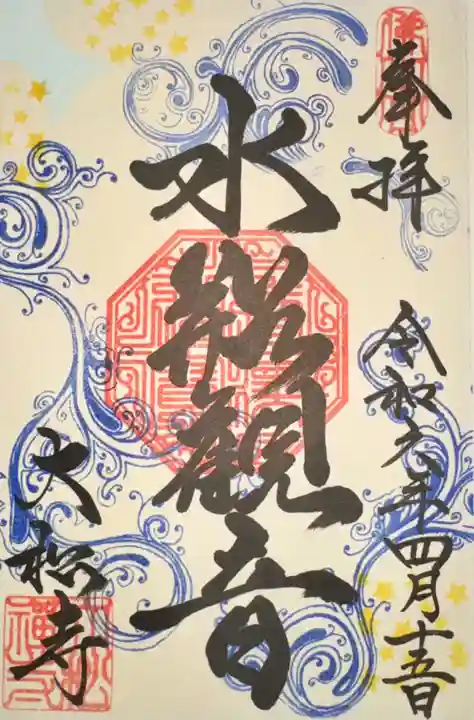 奉拝
水瓶観音
令和六年四月十五日
大松寺